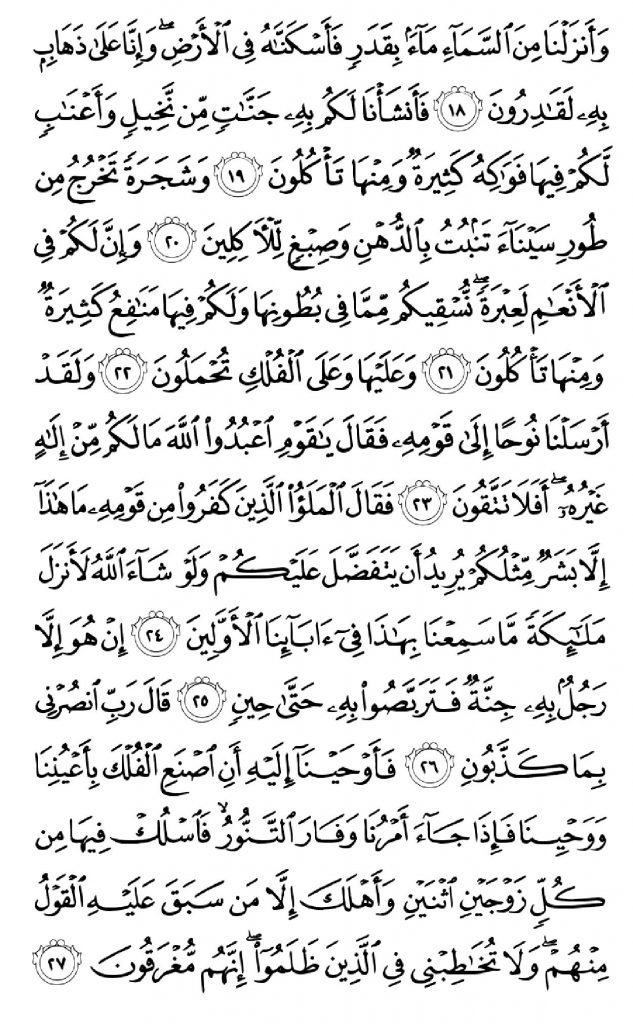 وَأَنزَلۡنَا مِنَ ٱلسَّمَآءِ مَآءَۢ بِقَدَرٖ فَأَسۡكَنَّٰهُ فِي ٱلۡأَرۡضِۖ وَإِنَّا عَلَىٰ ذَهَابِۭ
بِهِۦ لَقَٰدِرُونَ ١٨ فَأَنشَأۡنَا لَكُم بِهِۦ جَنَّٰتٖ مِّن نَّخِيلٖ وَأَعۡنَٰبٖ
لَّكُمۡ فِيهَا فَوَٰكِهُ كَثِيرَةٞ وَمِنۡهَا تَأۡكُلُونَ ١٩ وَشَجَرَةٗ تَخۡرُجُ مِن
طُورِ سَيۡنَآءَ تَنۢبُتُ بِٱلدُّهۡنِ وَصِبۡغٖ لِّلۡأٓكِلِينَ ٢٠ وَإِنَّ لَكُمۡ فِي
ٱلۡأَنۡعَٰمِ لَعِبۡرَةٗۖ نُّسۡقِيكُم مِّمَّا فِي بُطُونِهَا وَلَكُمۡ فِيهَا مَنَٰفِعُ كَثِيرَةٞ
وَمِنۡهَا تَأۡكُلُونَ ٢١ وَعَلَيۡهَا وَعَلَى ٱلۡفُلۡكِ تُحۡمَلُونَ ٢٢ وَلَقَدۡ
أَرۡسَلۡنَا نُوحًا إِلَىٰ قَوۡمِهِۦ فَقَالَ يَٰقَوۡمِ ٱعۡبُدُواْ ٱللَّهَ مَا لَكُم مِّنۡ إِلَٰهٍ
غَيۡرُهُۥٓۖ أَفَلَا تَتَّقُونَ ٢٣ فَقَالَ ٱلۡمَلَؤُاْ ٱلَّذِينَ كَفَرُواْ مِن قَوۡمِهِۦ مَا هَٰذَآ
إِلَّا بَشَرٞ مِّثۡلُكُمۡ يُرِيدُ أَن يَتَفَضَّلَ عَلَيۡكُمۡ وَلَوۡ شَآءَ ٱللَّهُ لَأَنزَلَ
مَلَٰٓئِكَةٗ مَّا سَمِعۡنَا بِهَٰذَا فِيٓ ءَابَآئِنَا ٱلۡأَوَّلِينَ ٢٤ إِنۡ هُوَ إِلَّا
رَجُلُۢ بِهِۦ جِنَّةٞ فَتَرَبَّصُواْ بِهِۦ حَتَّىٰ حِينٖ ٢٥ قَالَ رَبِّ ٱنصُرۡنِي
بِمَا كَذَّبُونِ ٢٦ فَأَوۡحَيۡنَآ إِلَيۡهِ أَنِ ٱصۡنَعِ ٱلۡفُلۡكَ بِأَعۡيُنِنَا
وَوَحۡيِنَا فَإِذَا جَآءَ أَمۡرُنَا وَفَارَ ٱلتَّنُّورُ فَٱسۡلُكۡ فِيهَا مِن
كُلّٖ زَوۡجَيۡنِ ٱثۡنَيۡنِ وَأَهۡلَكَ إِلَّا مَن سَبَقَ عَلَيۡهِ ٱلۡقَوۡلُ
مِنۡهُمۡۖ وَلَا تُخَٰطِبۡنِي فِي ٱلَّذِينَ ظَلَمُوٓاْ إِنَّهُم مُّغۡرَقُونَ ٢٧